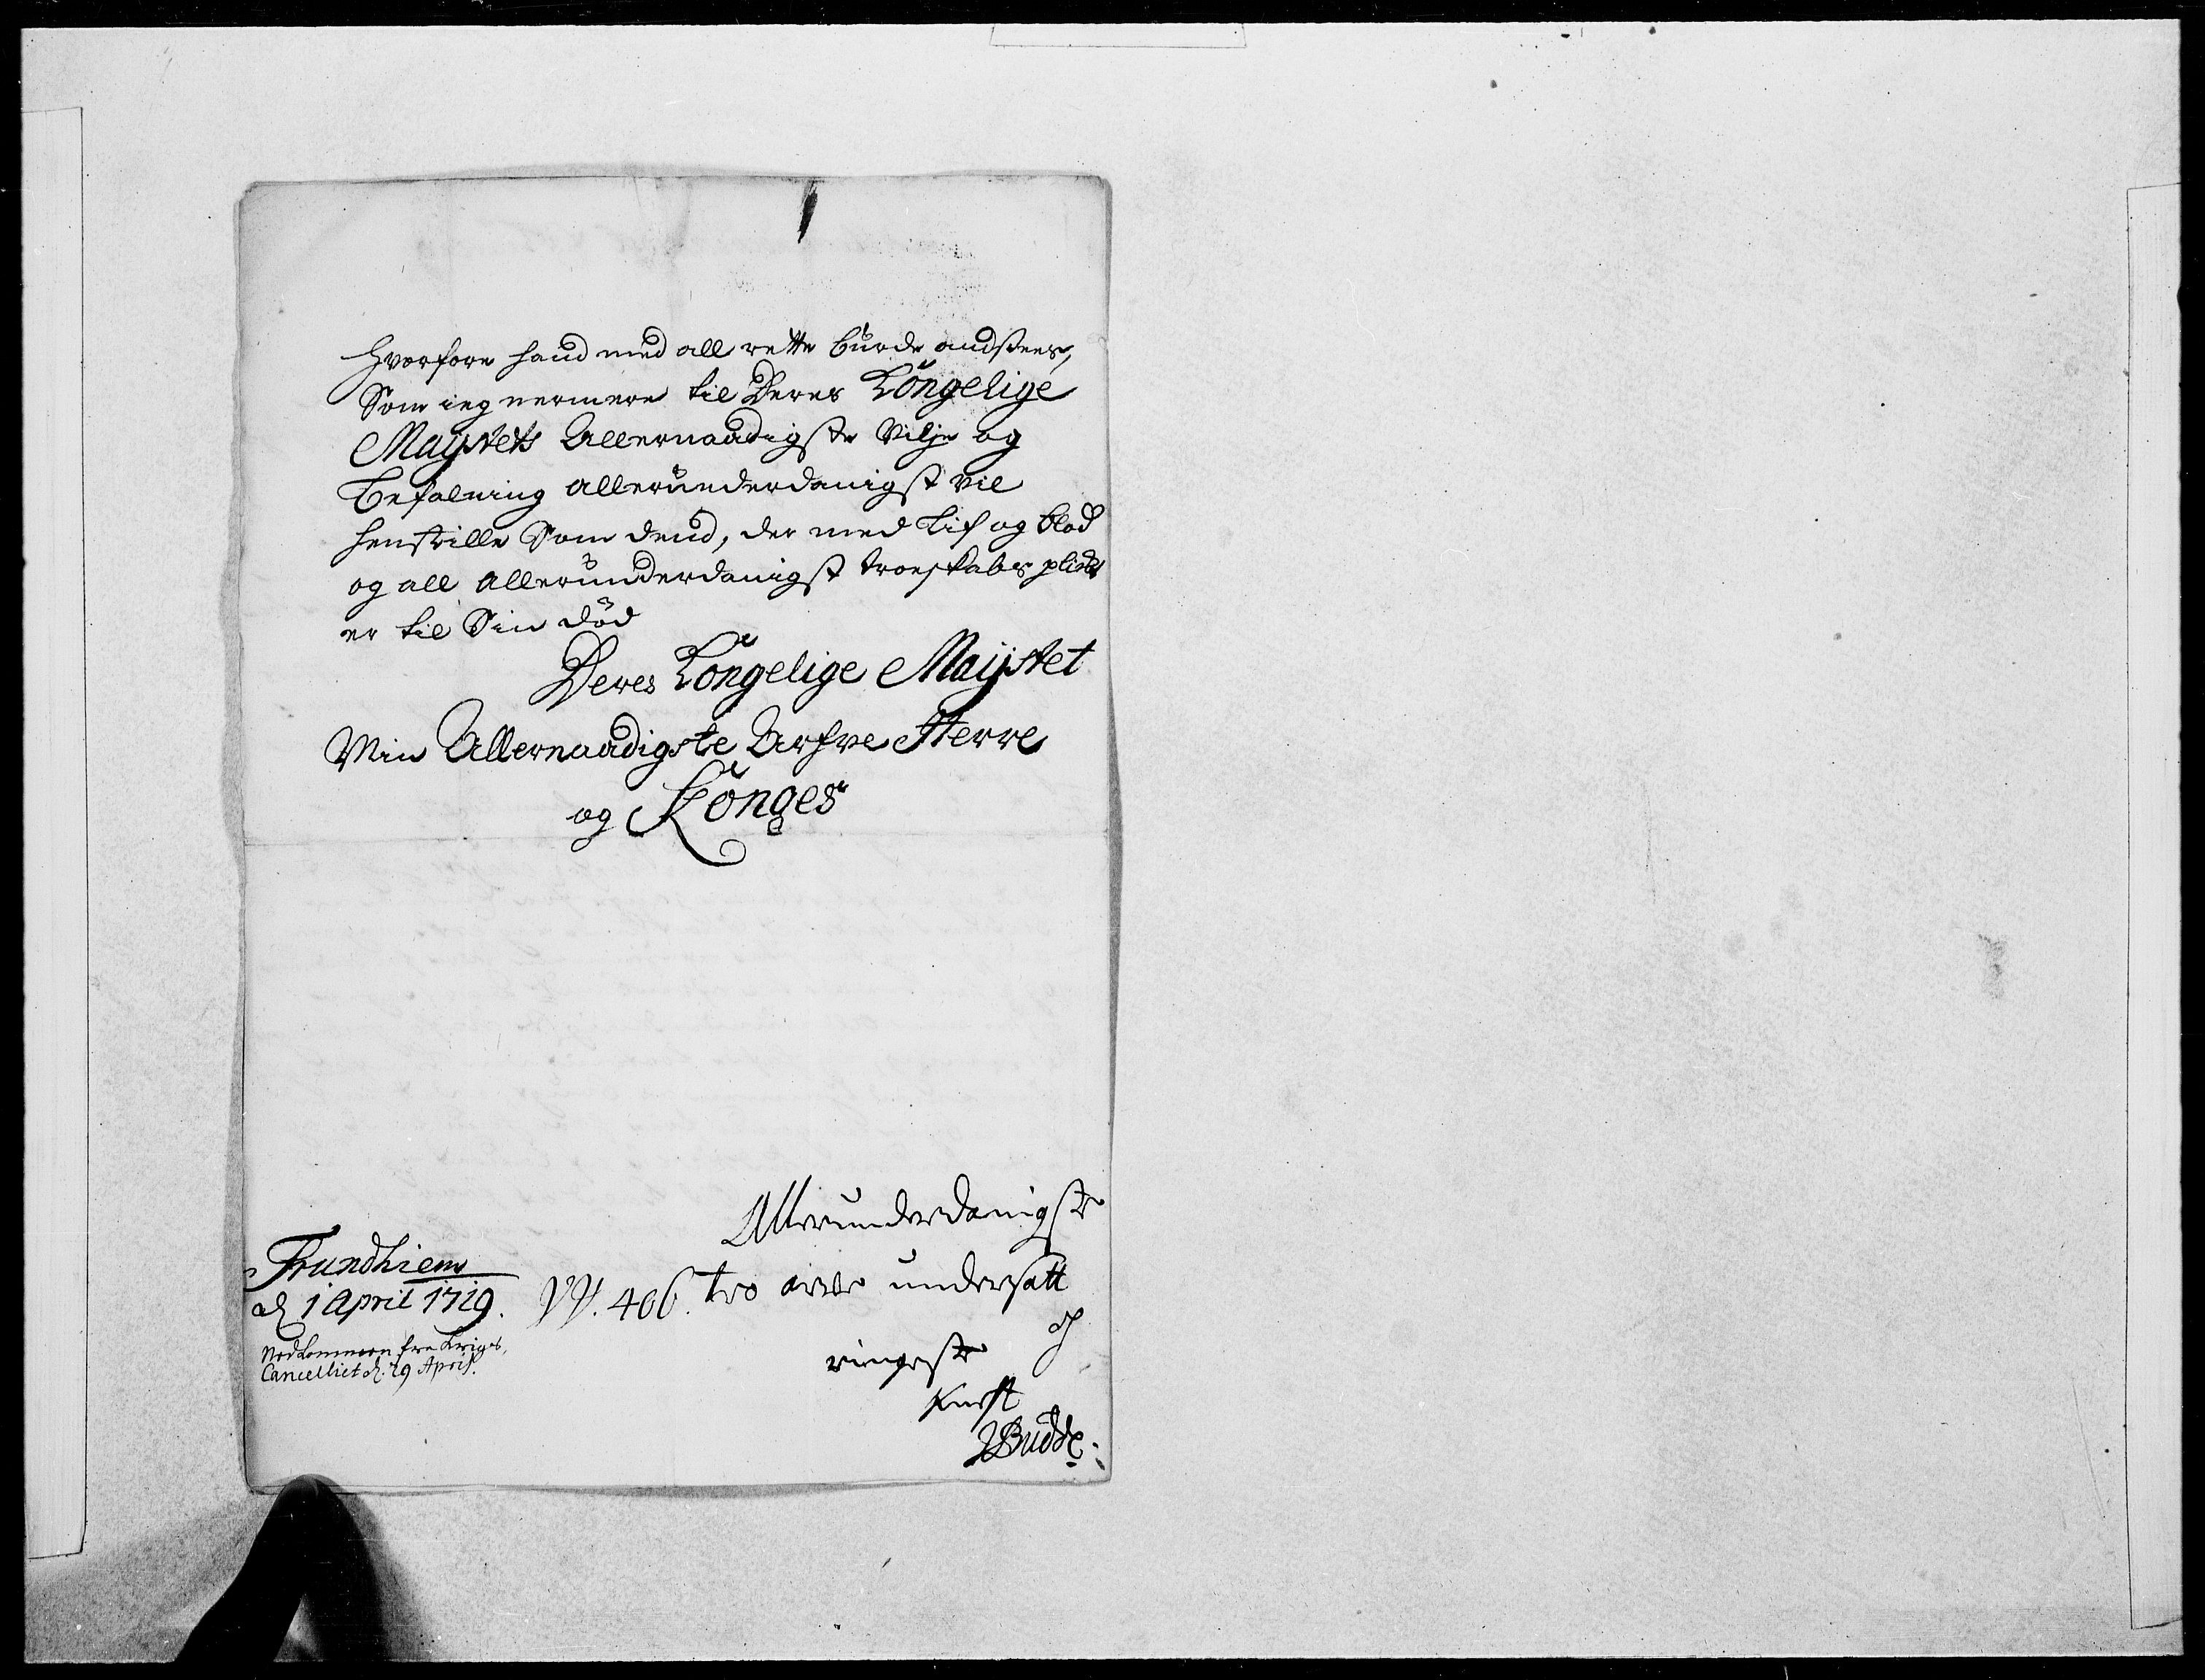 Hvorfore hand med all rette burde andsees,
Som ieg nermere til Deres Kongelige
Mayístets Allernaadigste Vilje og
Befalning allerunderdanigst vil
henstille Som dend, der med Lif og blod
og all Allerunderdanigst troeskabs plict
er til Sin död
Deres Kongelige Mayístet
Min Allernaadigste Arfve Herre
og Konges
Allerunderdanigste
tro arve undersatt
og
ringeste
Knecht
VBudde
Trundhiem
d 1 April 1719.
N. 406.
Nedkommen fra Krigs,
Cancelliet d. 29 April.